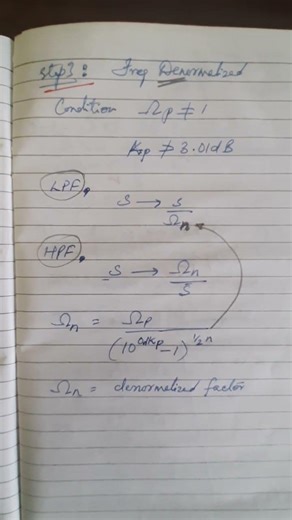 Step3: Freq Denormalized
Condition Ωp ≠ 1
Kp ≠ 3.01dB
LPF,
S → S/Ωn
HPF,
S → Ωn/S
Ωn = Ωp/(10^0.1Kp - 1)^1/2n
Ωn = denormalized factor